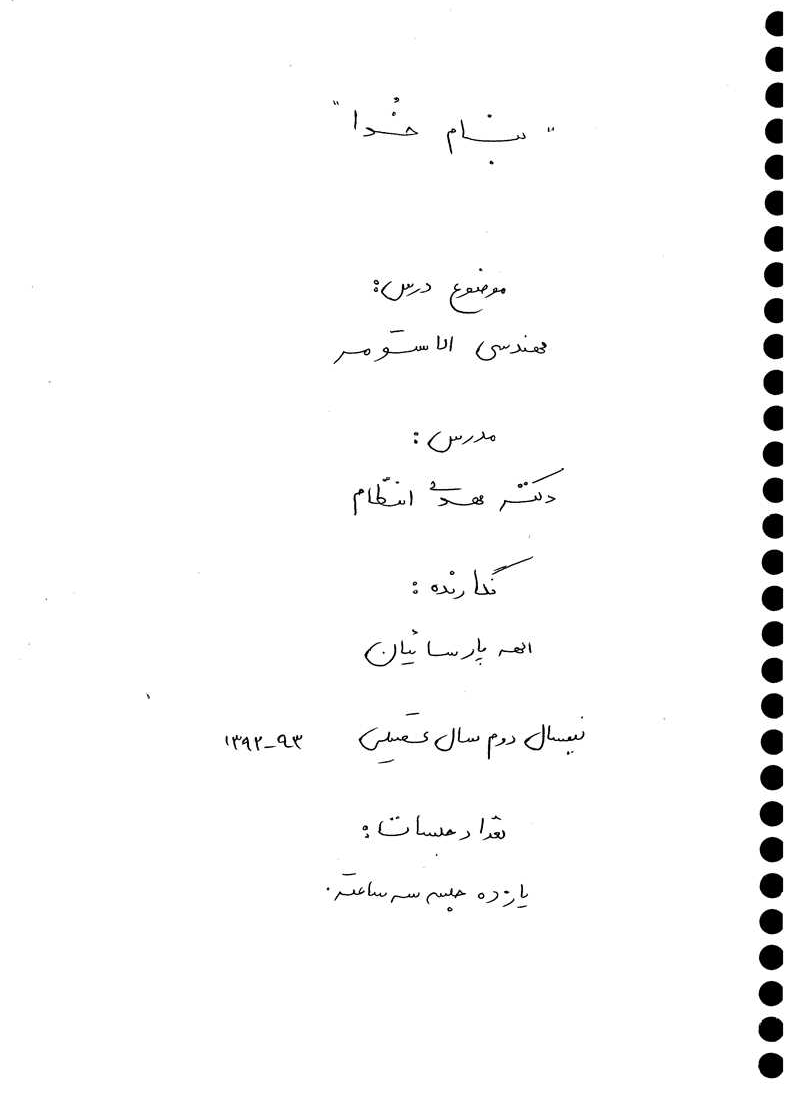 "بنام خدا"
موضوع درس:
مهندسی الاستومر
مدرس:
دکتر مهدی انتظام
نگارنده:
الهه پارسائیان
نیمسال دوم سال تحصیلی ۹۳-۱۳۹۲
تعداد جلسات:
یازده جلسه سه ساعته.